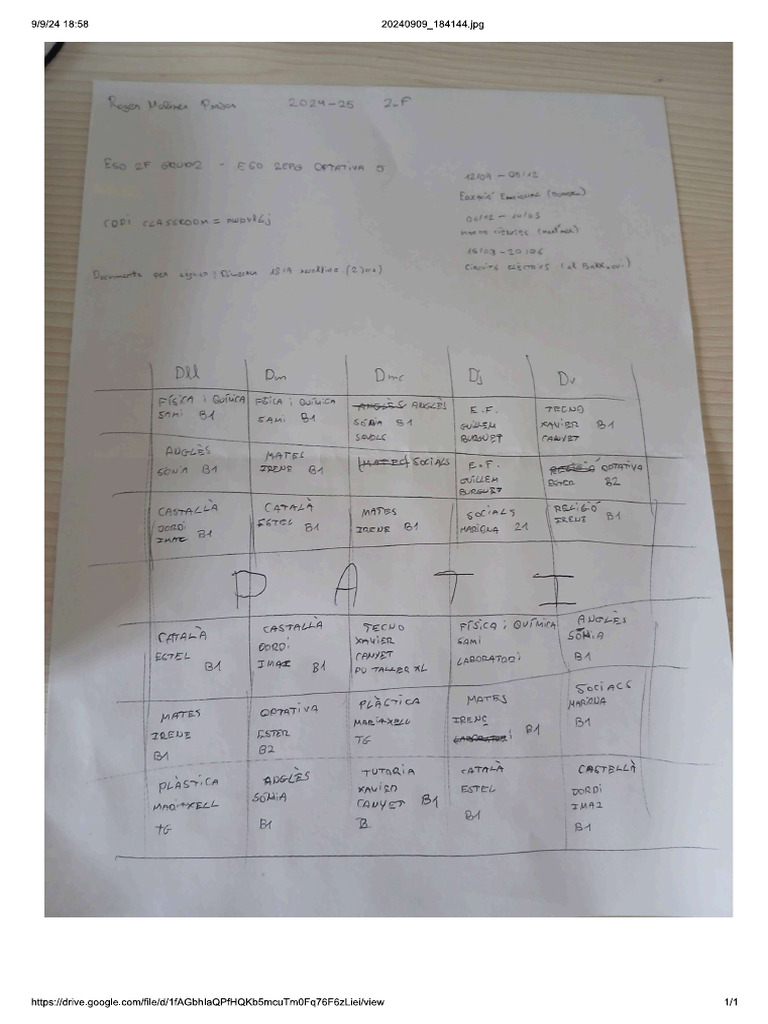 9/9/24 18:58
20240909_184144.jpg
2024-25 2-F
ESO 2F GRUP2 - ESO 2EPG OPTATIVA
12/09 - 05/12
CODI CLASSROOM =
Documents per
CIRCUITS ELÈCTRICS
Dll Dm Dmc Dj Dv
FÍSICA i QUÍMICA FÍSICA i QUÍMICA ANGLÈS ANGLÈS E.F. TECNO
SAMI B1 SAMI B1 SÒNIA B1 GUILLEM XAVIER B1
SOCIALS BURGUET CANYET
ANGLÈS MATES (MATES) SOCIALS E.F. RELIGIÓ OPTATIVA
SONIA B1 IRENE B1 GUILLEM ESTER B2
BURGUET
CASTALLÀ CATALÀ MATES SOCIALS RELIGIÓ
JORDI ESTEL B1 IRENE B1 MARIONA 21 IRENE B1
IMAZ B1
PATI
CATALÀ CASTALLÀ TECNO FÍSICA i QUÍMICA ANGLÈS
ESTEL JORDI XAVIER SAMI SÒNIA
B1 IMAZ B1 CANYET LABORATORI B1
PV TALLER XL
MATES OPTATIVA PLÀSTICA MATES SOCIALS
IRENE ESTER MARITXELL IRENE B1 MARIONA
B1 B2 TG LABORATORI B1
PLÀSTICA ANGLÈS TUTORIA CATALÀ CASTELLÀ
MARITXELL SÒNIA XAVIER ESTEL JORDI
TG B1 CANYET B1 B1 IMAZ
B B1
https://drive.google.com/file/d/1fAGbhIaQPfHQKb5mcuTm0Fq76F6zLiei/view
1/1